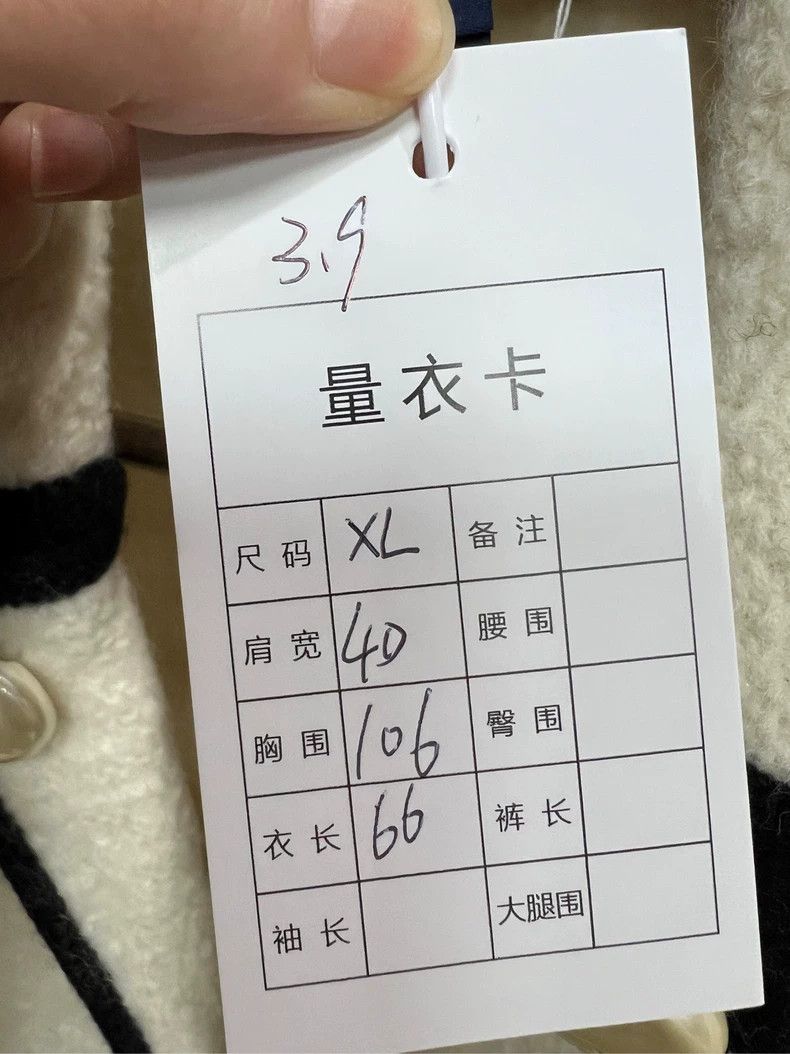 3.9
量衣卡
尺码 XL 备注
肩宽 40 腰围
胸围 106 臀围
衣长 66 裤长
袖长 大腿围